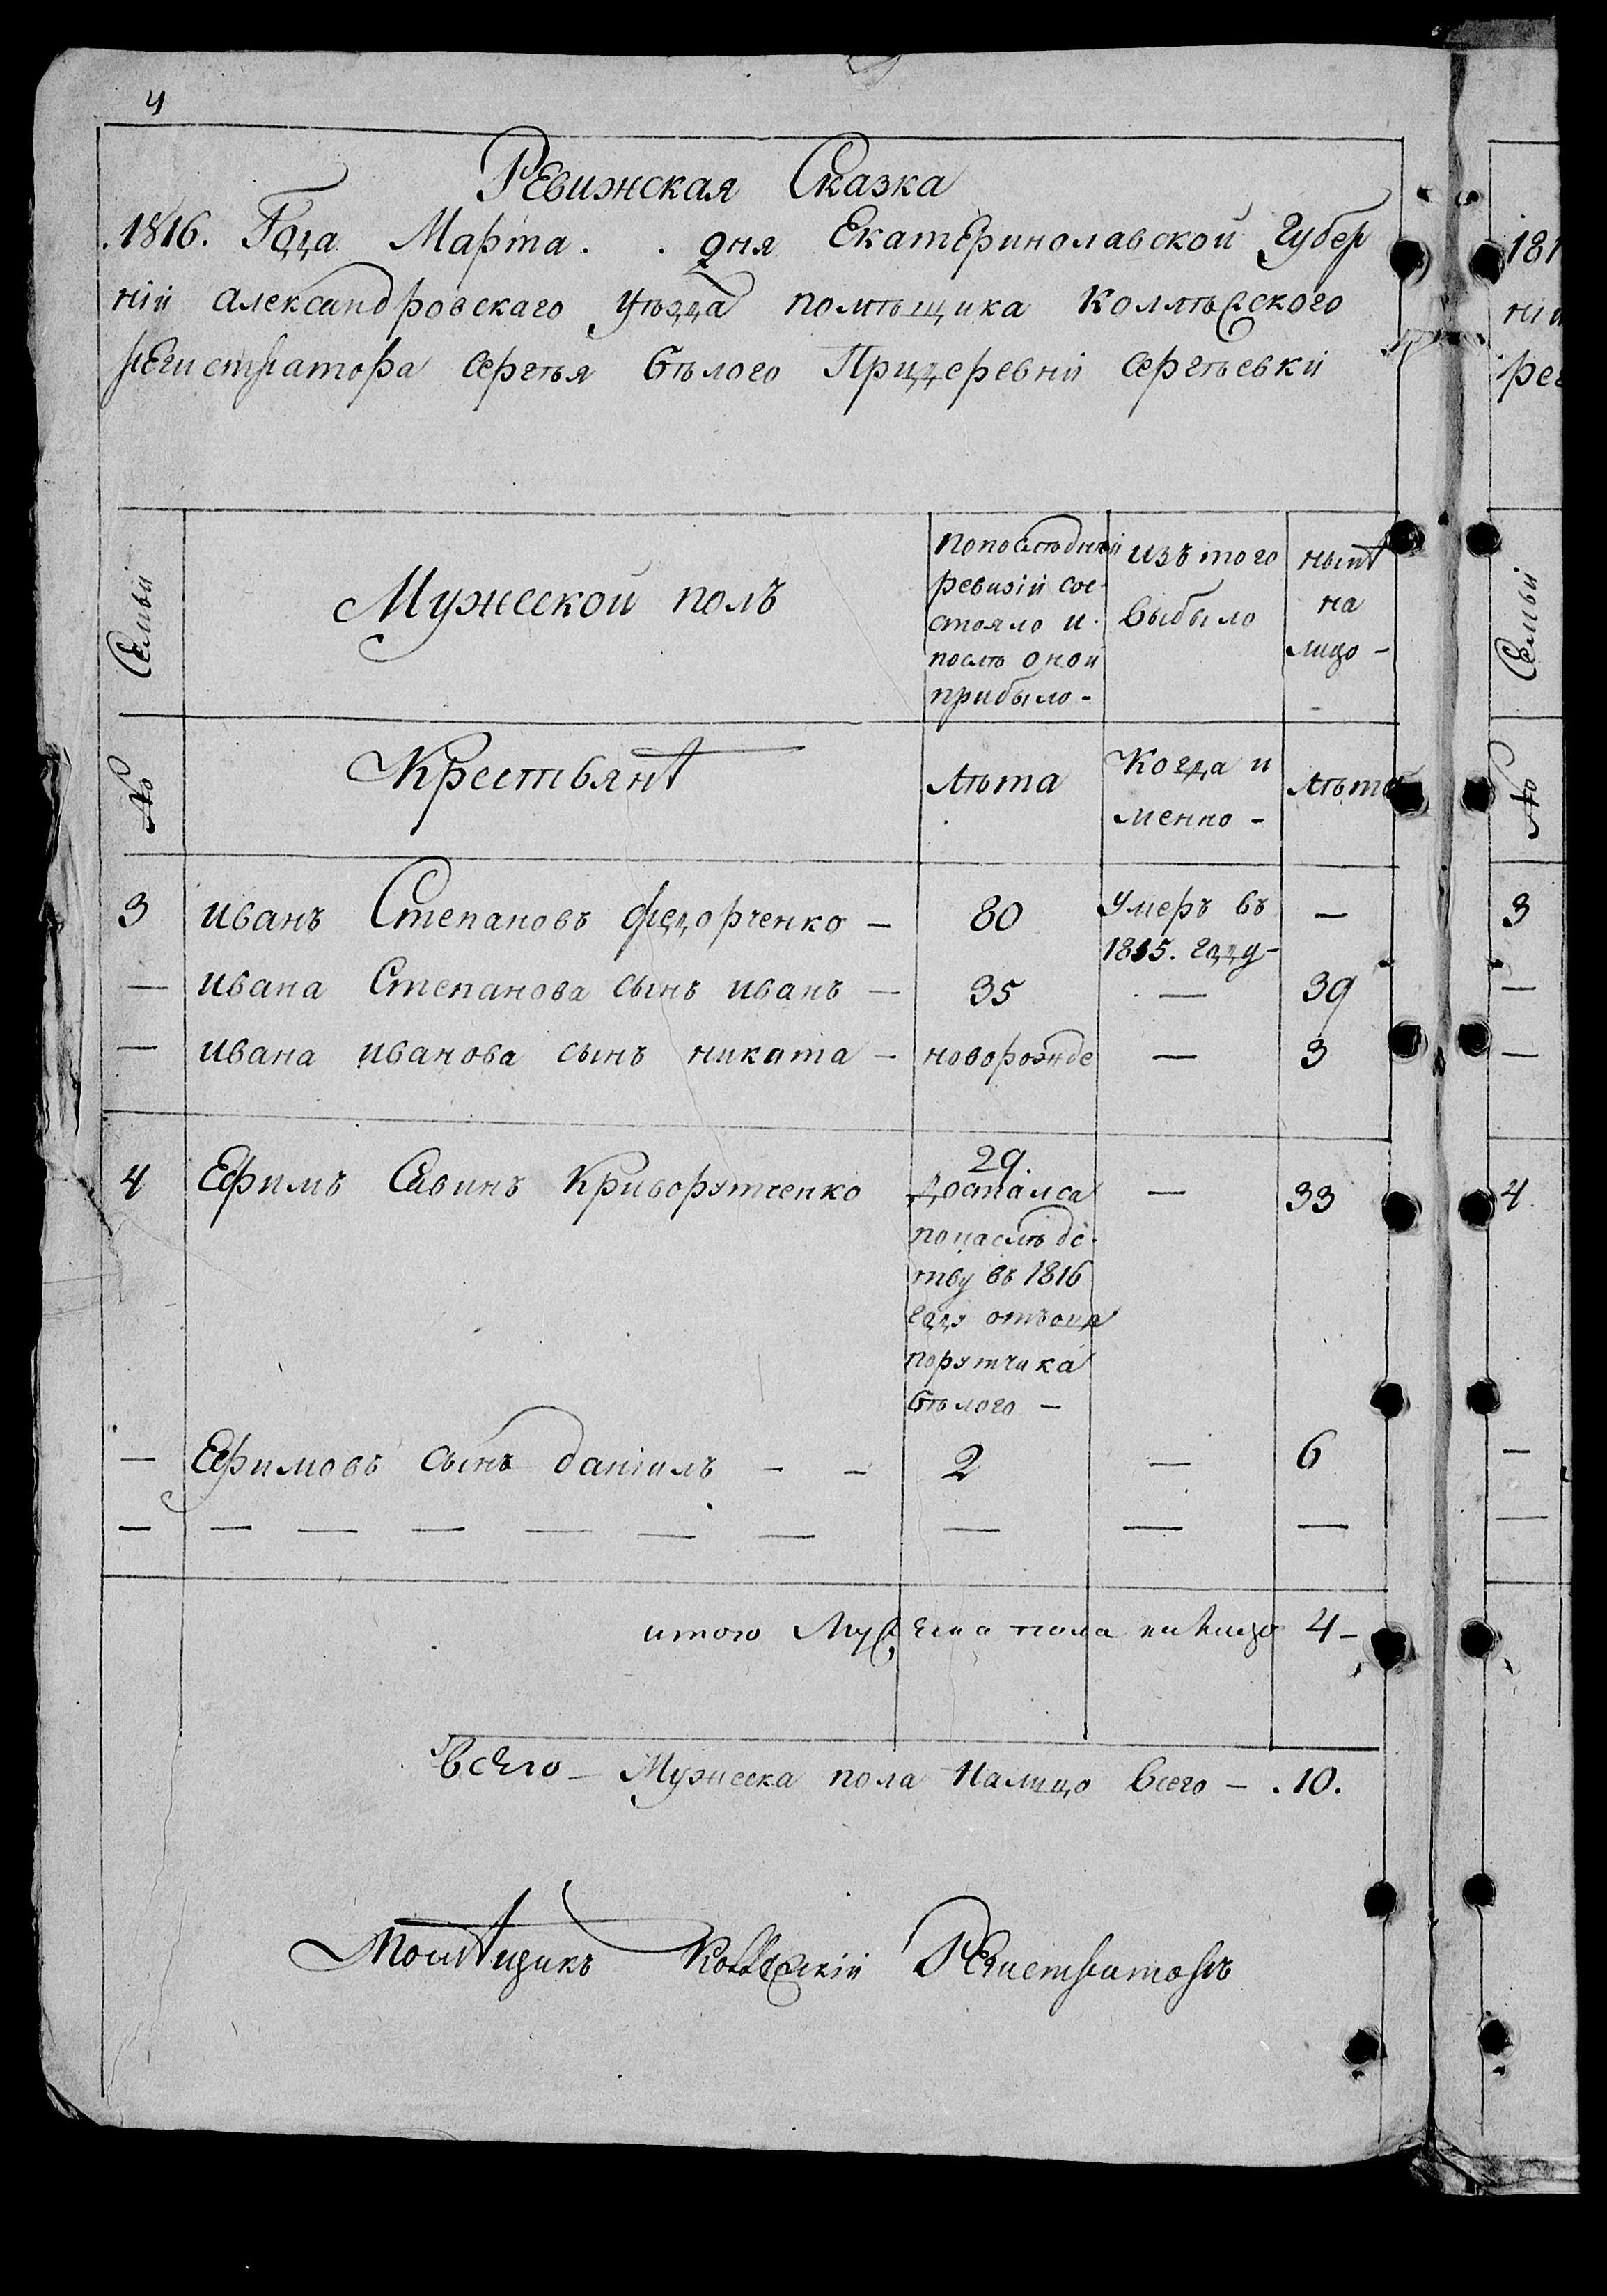 4
Ревижская Сказка
.1816. Года Марта . . дня Екатеринославской Губер
ніи александровскаго уѣзда помѣщика коллѣжского
регистратора сергѣя бѣлого Придеревни сергѣевки
Семьи
Мужеской полъ
попослѣдней ревизіи сос-
стояло и
послѣ оной
прибыло -
изъ того
выбыло
нынѣ
на
лицо -
№
Крестьянѣ
лѣта
Когда и
менно -
лѣта
3 иванъ Степановъ федорченко — 80 умеръ въ —
1815. году -
— ивана Степанова сынъ иванъ — 35 — 39
— ивана иванова сынъ никита — новорожде — 3
4 Ефимъ Савинъ Криворутченко 29. — 33
Достался
понаслѣдс-
тву въ 1816
году отъотца
порутчика
бѣлого —
— Ефимовъ сынъ даніилъ - - 2 — 6
— — — — — — — — — —
итого Мужеска пола налицо 4 -
Всего - Мужеска пола Налицо всего - . 10.
Помѣщикъ Коллежскій Регистраторъ
181
ни
рег
Семьи
№
3
—
—
4.
—
—